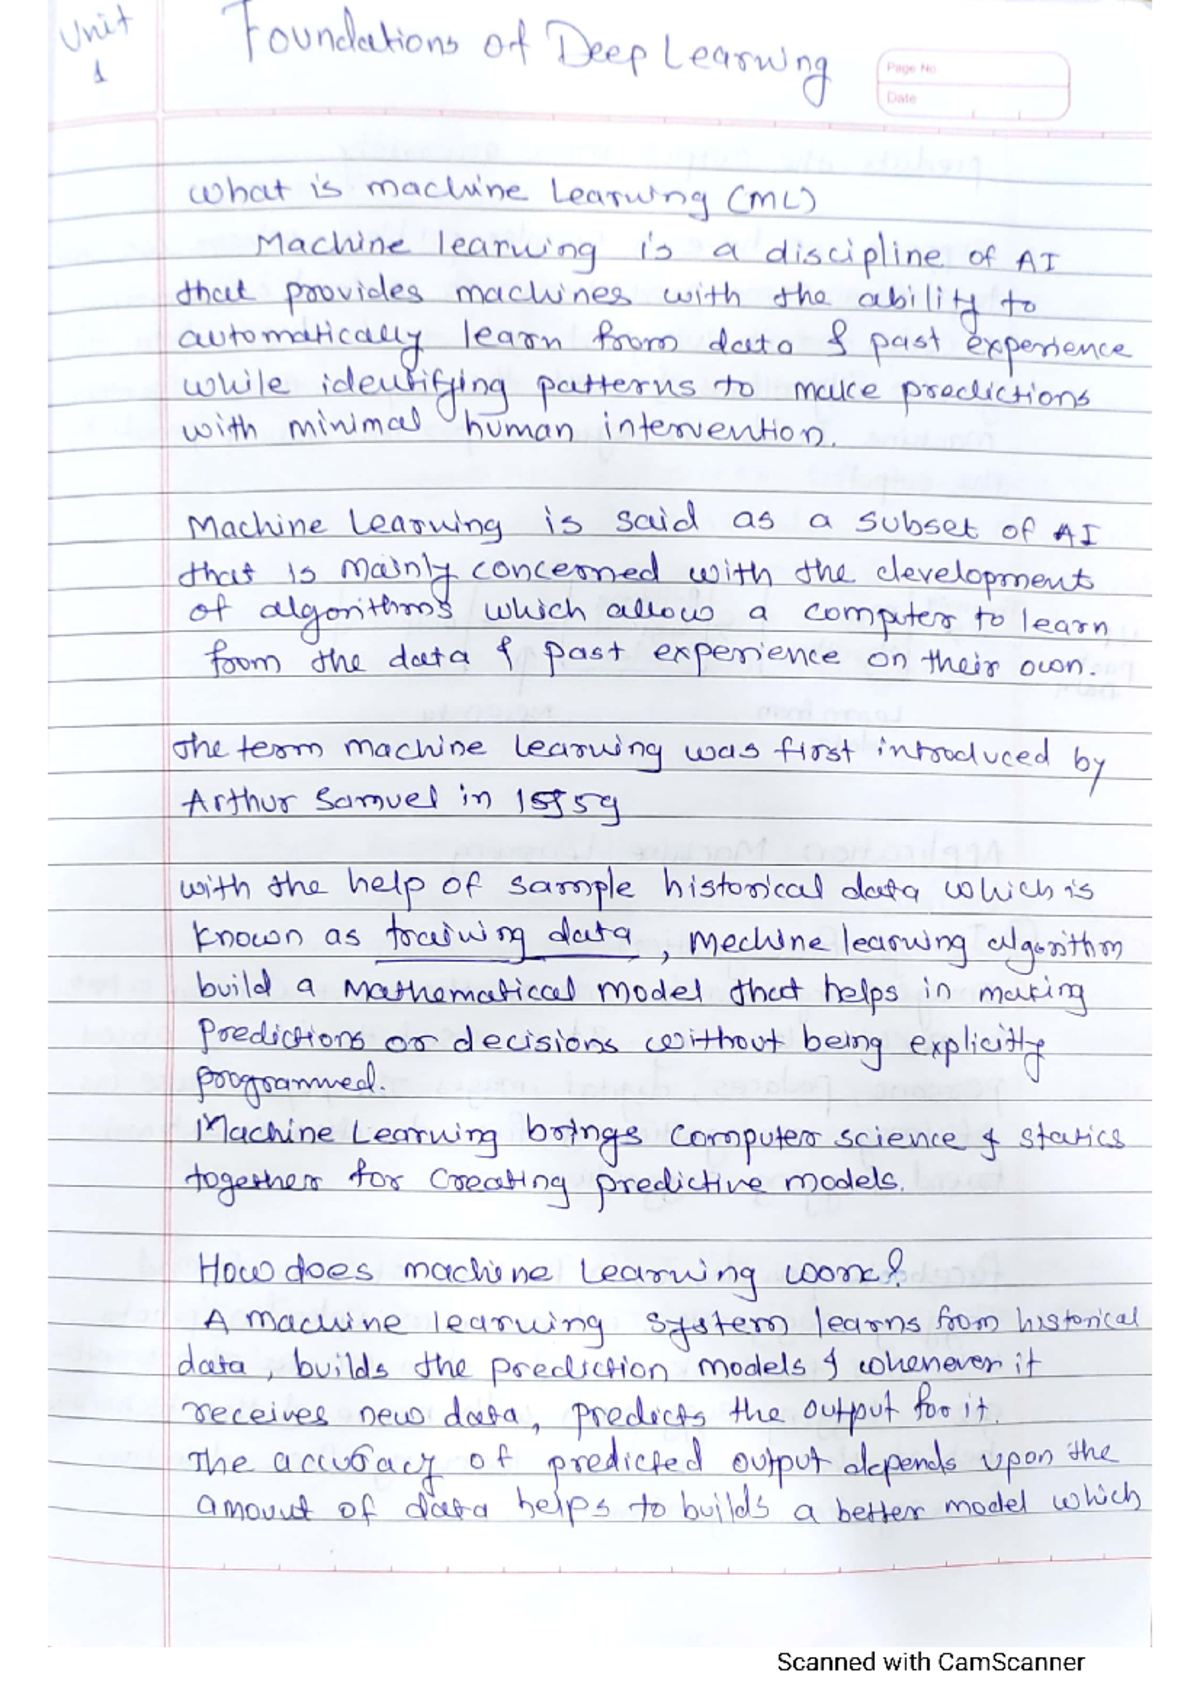 Unit
1
Foundations of Deep Learning
Page No
Date
What is machine Learning (ML)
Machine learning is a discipline of AI
that provides machines with the ability to
automatically learn from data & past experience
while identifying patterns to make predictions
with minimal human intervention.
Machine Learning is said as a subset of AI
that is mainly concerned with the development
of algorithms which allow a computer to learn
from the data & past experience on their own.
The term machine learning was first introduced by
Arthur Samuel in 1959
with the help of sample historical data which is
known as training data, Mechine learning algorithm
build a Mathematical model that helps in making
predictions or decisions without being explicitly
programmed.
Machine Learning brings computer science & statics
together for creating predictive models.
How does machine learning work?
A machine learning system learns from historical
data, builds the prediction models & whenever it
receives new data, predicts the output for it.
The accuracy of predicted output depends upon the
amount of data helps to builds a better model which
Scanned with CamScanner